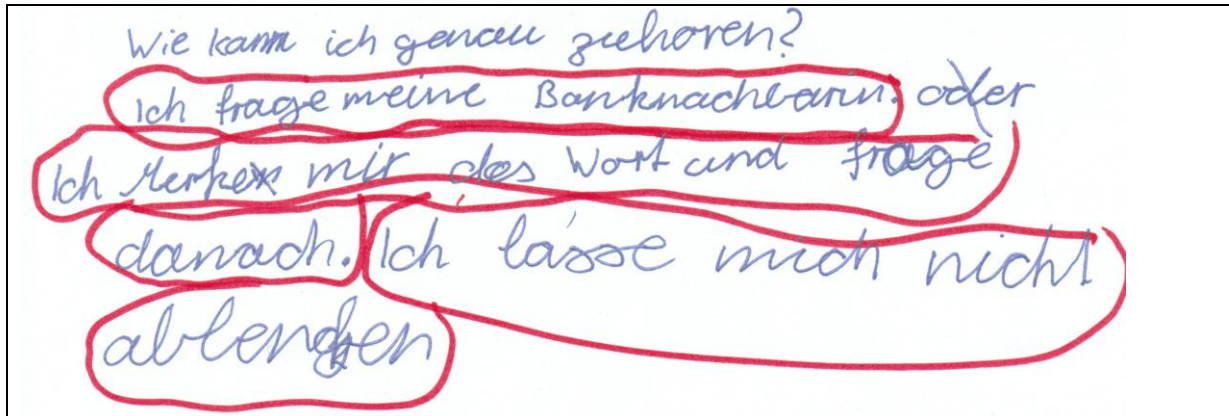 Wie kann ich genau zuhoren?
Ich frage meine Banknachbarin. oder
Ich Merke mir das Wort und frage
danach. Ich lasse mich nicht
ablenken